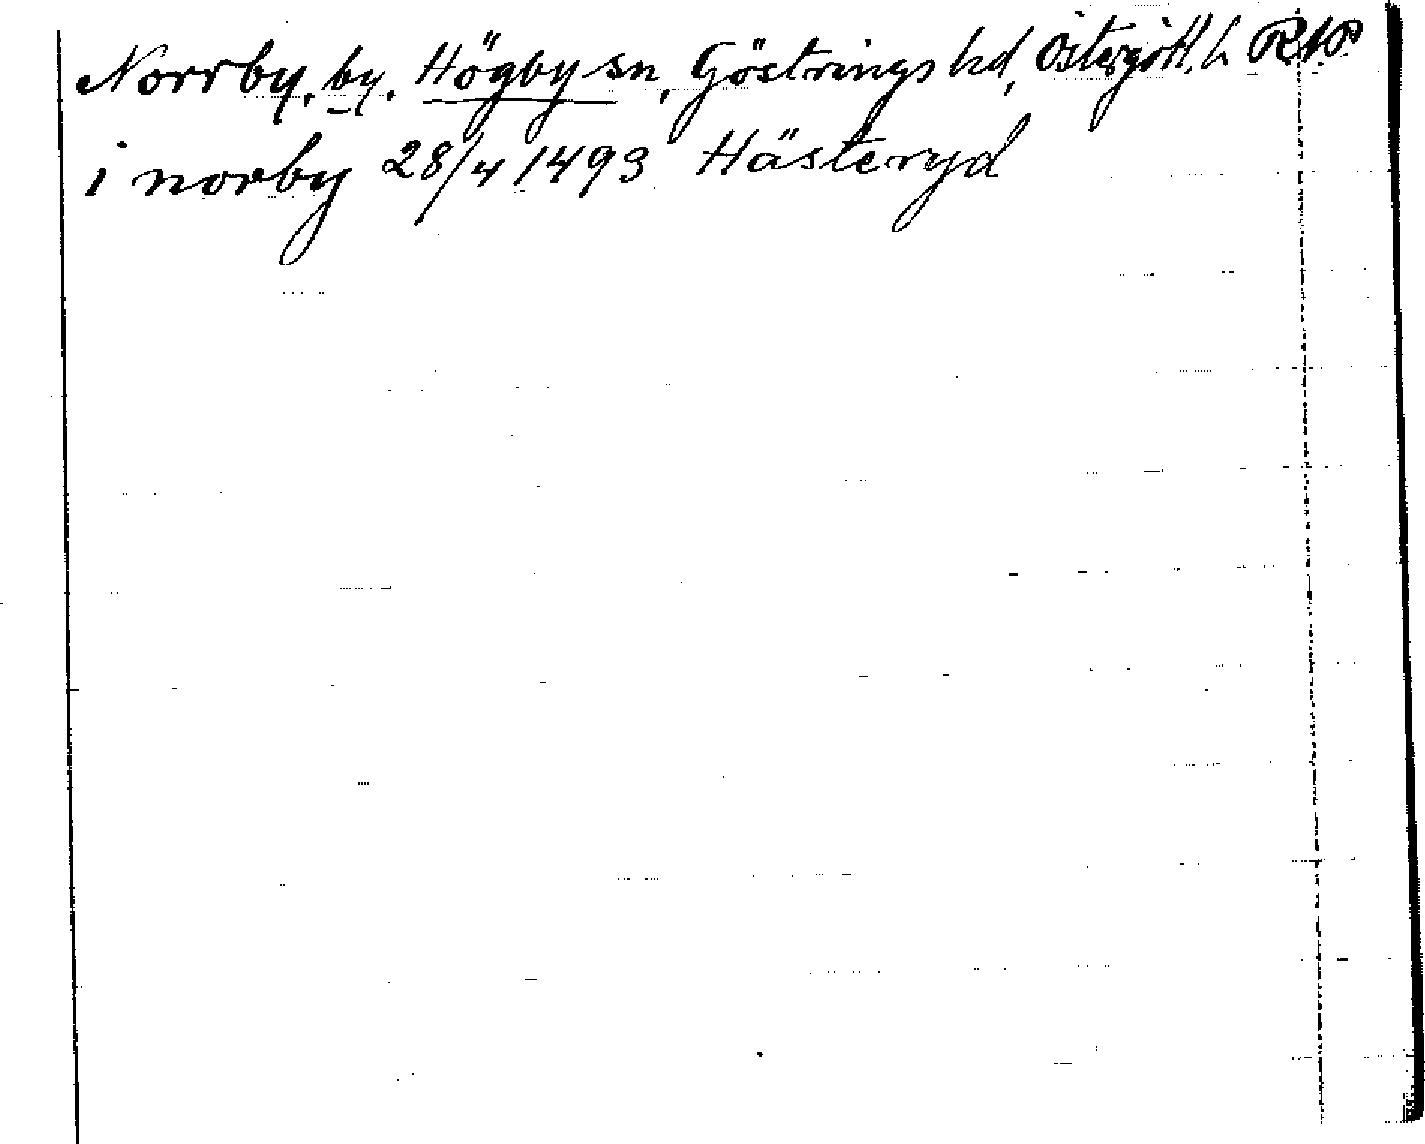 Norrby, by. Högby sn, Göstrings hd, Östergötl. L RAP
i norby 28/4 1493 Hästeryd